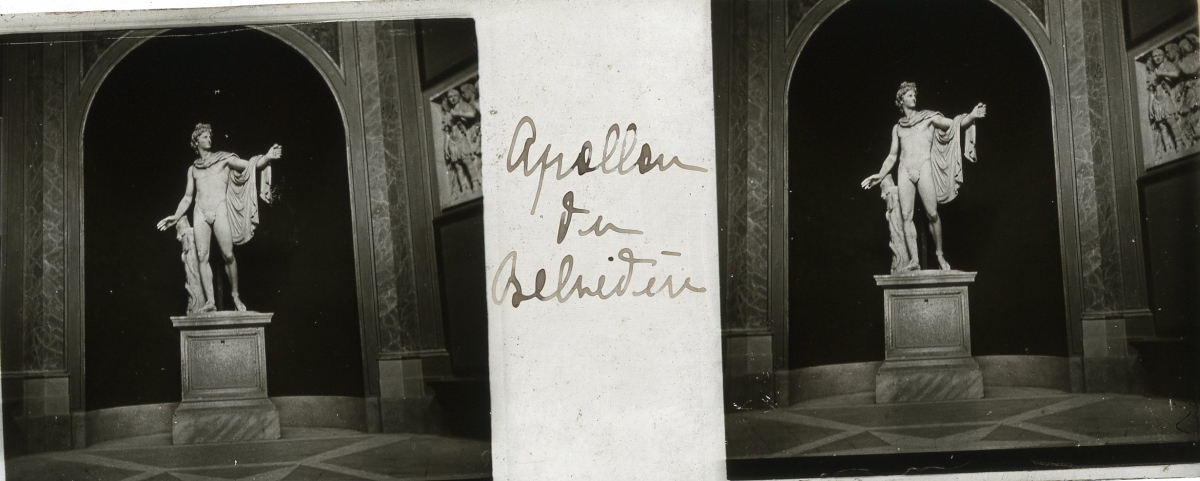 Apollon
du
Belvédère